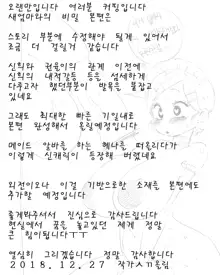 오랜만입니다 여러분 커핑입니다
새엄마와의 비밀 본편은
스토리 부분에 수정해야 될게 있어서
조금 더 걸릴거 같습니다
신희와 권율이의 관계 이전에
신희의 내적갈등 등을 섬세하게
다루고자 했던부분이 발목을 붙잡고
있네요
그래도 최대한 빠른 기일내로
본편 완성해서 올릴예정입니다
메이드 알바를 하는 헤나를 떠올리다가
이렇게 신캐릭이 등장해 버렸네요
외전이오나 이걸 기반으로한 소재를 본편에도
추가할 예정입니다
즐겨봐주셔서 진심으로 감사드립니다
현실에서 꿈을 놓고있던 제게 정말
큰 힘이됩니다ㅜㅜ
열심히 그리겠습니다 정말 감사합니다
2018.12.27 작가ㅅㄲ올림